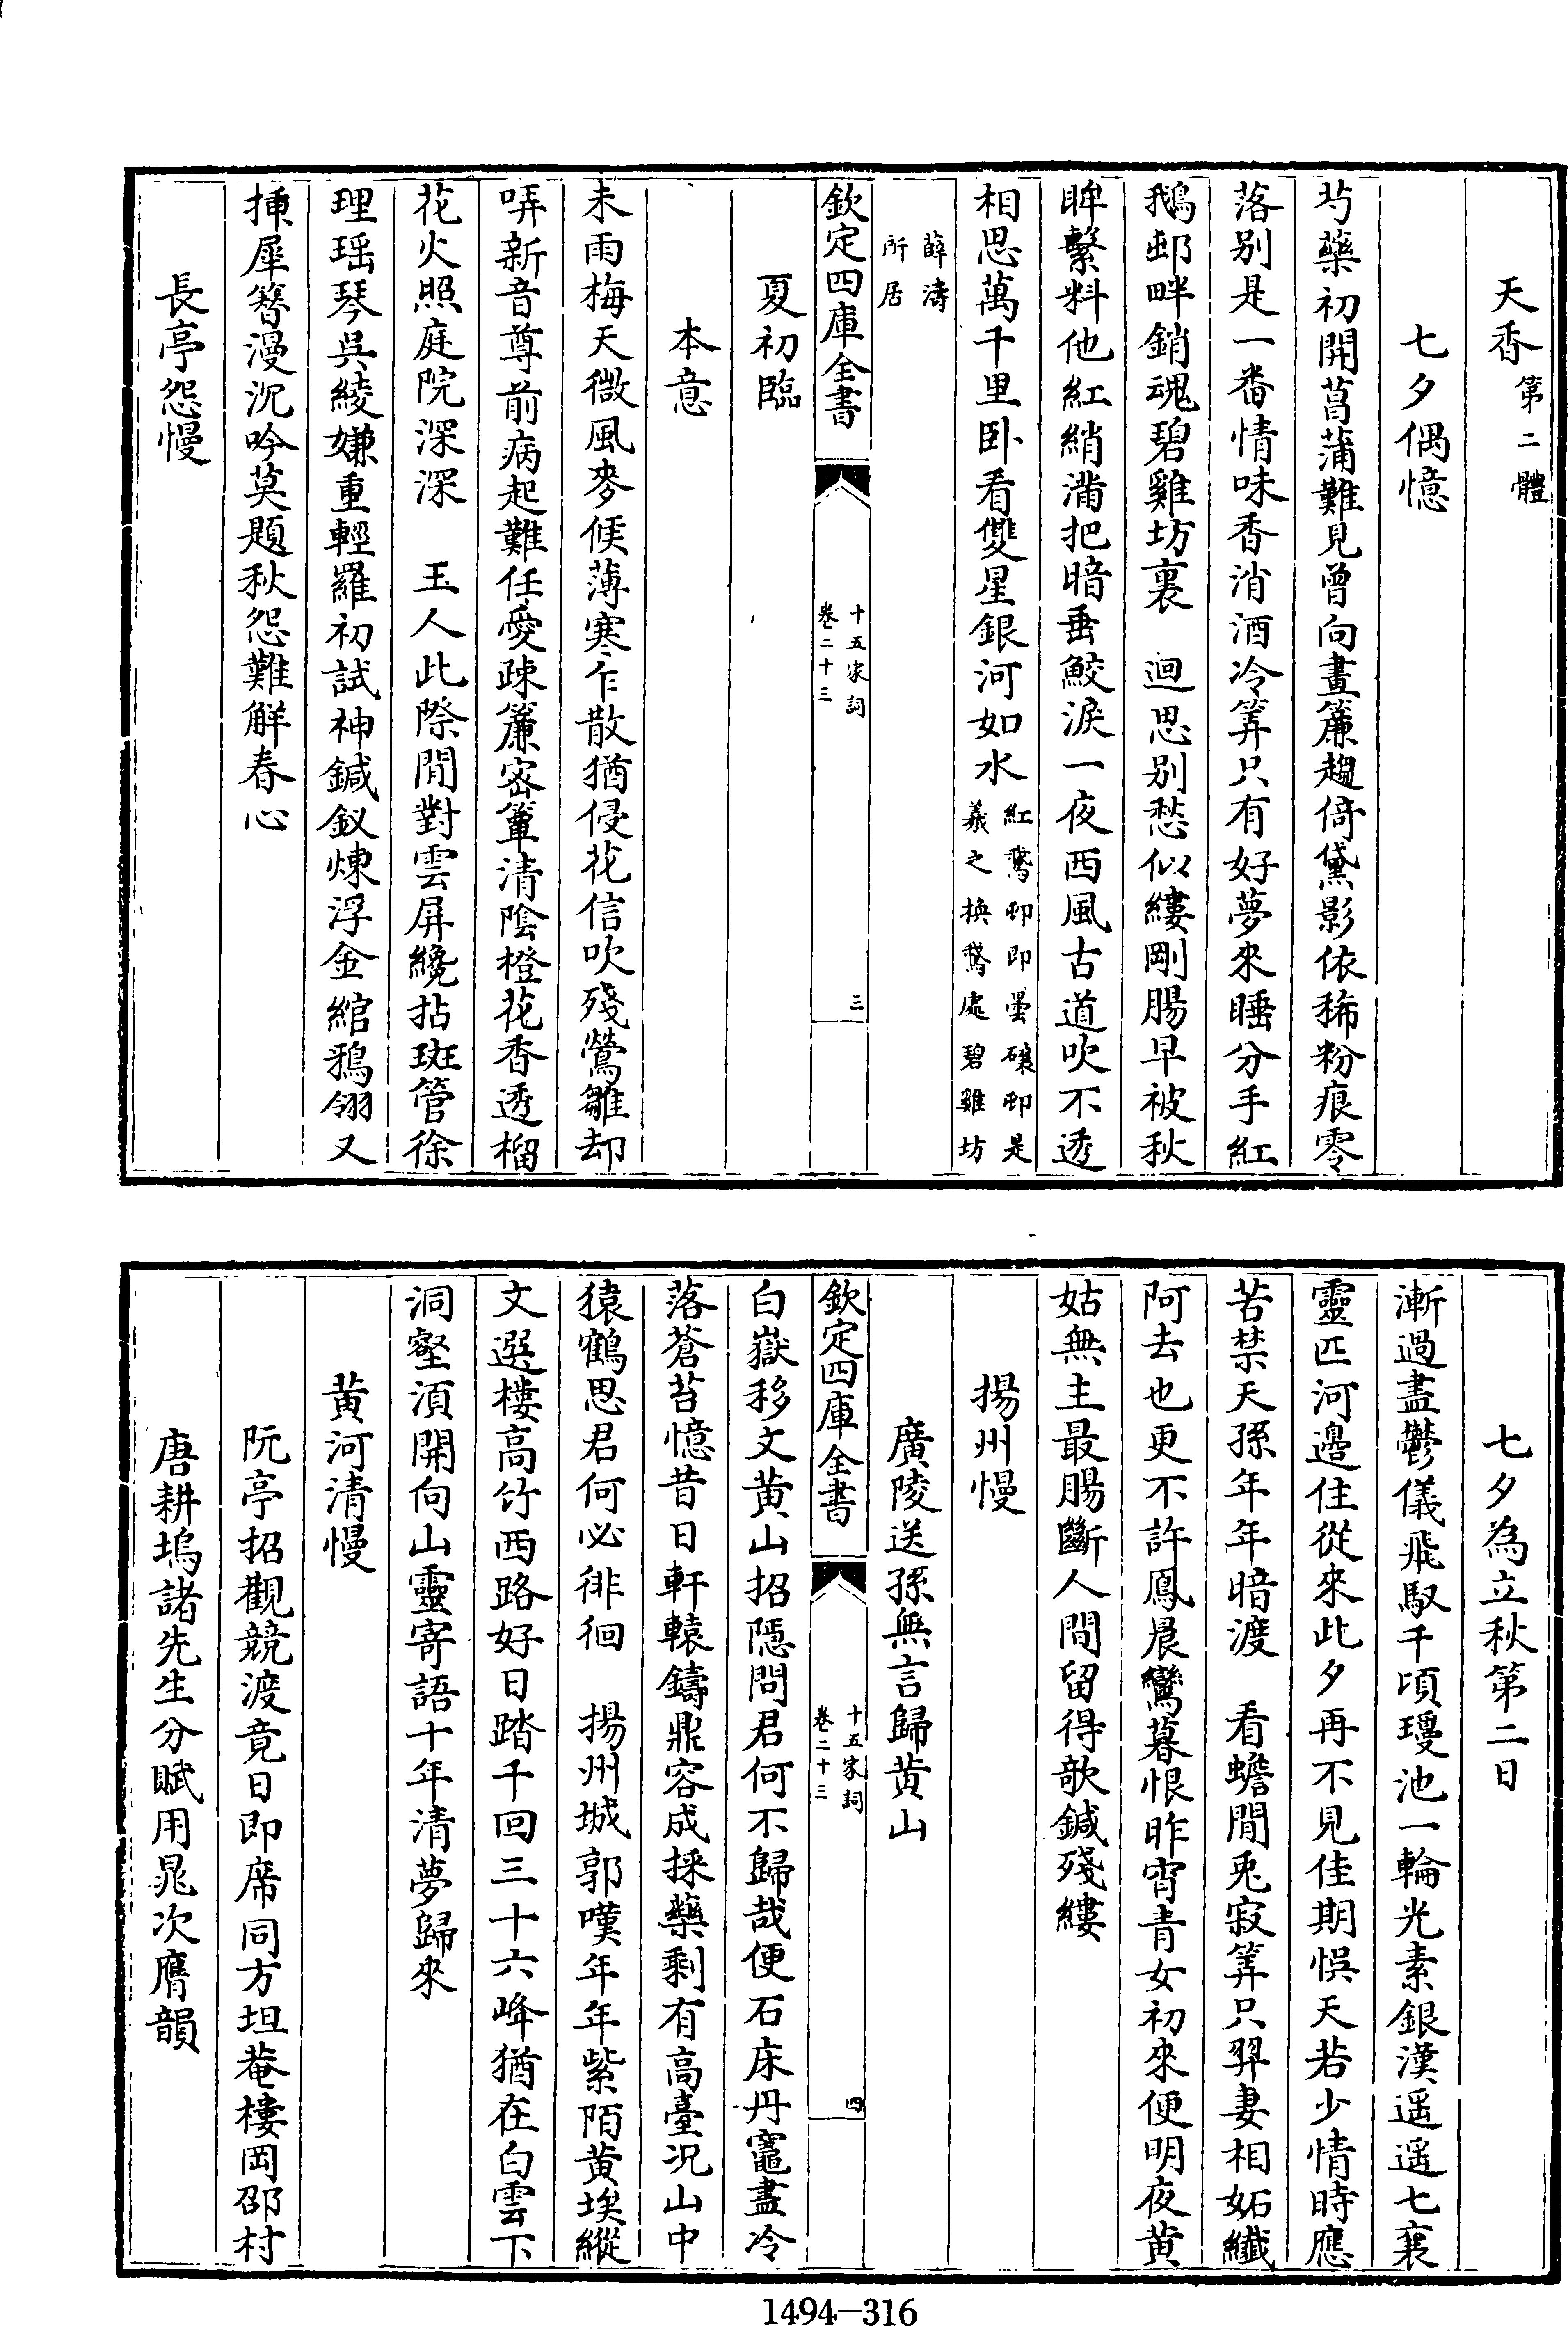 天香第二體
七夕偶憶
芍藥初開菖蒲難見曾向畫簾趨倚黛影依稀粉痕零
落别是一番情味香消酒冷筭只有好夢來睡分手紅
鵝邨畔銷魂碧雞坊裏　迴思别愁似縷剛腸早被秋
眸繫料他紅綃滿把暗垂鮫淚一夜西風古道吹不透
相思萬千里卧看雙星銀河如水紅鵞邨即曇䃰邨是
羲之換鵞處碧雞坊
薛濤
所居
欽定四庫全書
十五家詞
卷二十三
三
夏初臨
本意
未雨梅天微風麥候薄寒乍散猶侵花信吹殘鶯雛却
哢新音尊前病起難任愛疎簾密簟清陰橙花香透榴
花火照庭院深深　玉人此際閒對雲屏纔拈斑管徐
理瑶琴吳綾嫌重輕羅初試神鍼釵煉浮金綰鴉翎又
揷犀簪漫沉吟莫題秋怨難解春心
長亭怨慢
七夕為立秋第二日
漸過盡鬱儀飛馭千頃瑷池一輪光素銀漢遥遥七襄
靈匹河邊住從來此夕再不見佳期悞天若少情時應
苦禁天孫年年暗渡　看蟾閒兎寂筭只羿妻相妬纎
阿去也更不許鳳晨鸞暮恨昨宵青女初來便明夜黄
姑無主最腸斷人間留得欹鍼殘縷
揚州慢
廣陵送孫無言歸黄山
欽定四庫全書
十五家詞
卷二十三
四
白嶽移文黄山招隱問君何不歸哉便石床丹竈盡冷
落蒼苔憶昔日軒轅鑄鼎容成採藥剩有高臺况山中
猿鶴思君何必徘徊　揚州城郭嘆年年紫陌黄埃縱
文選樓高竹西路好日踏千回三十六峰猶在白雲下
洞壑湏開向山靈寄語十年清夢歸來
黄河清慢
阮亭招觀競渡竟日即席同方坦菴樓岡邵村
唐耕塢諸先生分賦用晁次膺韻
1494—316